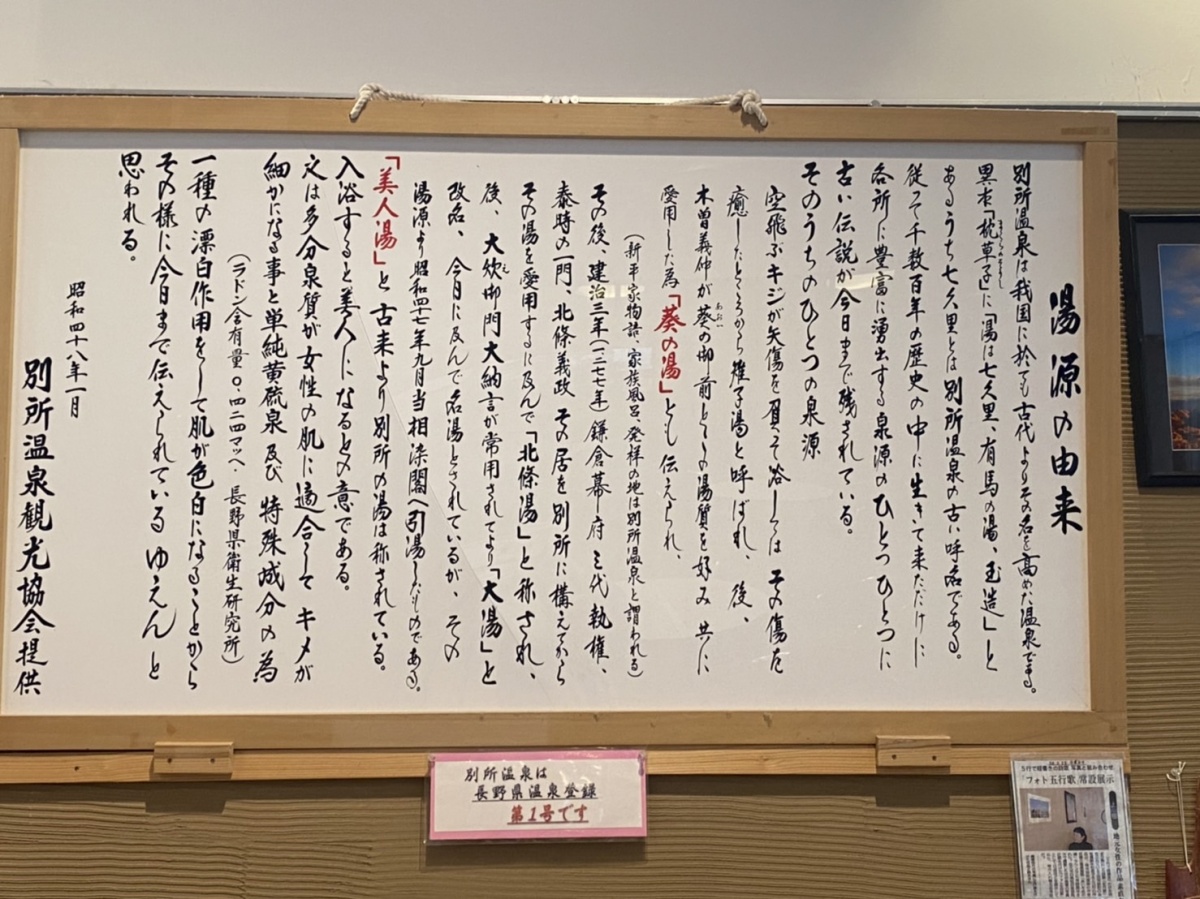 湯源の由来
別所温泉は我国に於ても古代よりその名を高めた温泉です。
異本「枕草子」に「湯は七久里、有馬の湯、玉造」と
まくらのそうし
あるうち七久里とは別所温泉の古い呼名である。
従って千数百年の歴史の中に生きて来ただけに
各所に豊富に湧出する泉源のひとつひとつに
古い伝説が今日まで残されている。
そのうちのひとつの泉源
空飛ぶキジが矢傷を負そ浴しては その傷を
癒したところから雉子湯と呼ばれ、後、
木曽義仲が葵の御前とこの湯質を好み共に
あおい
愛用した為「葵の湯」とも伝えられ、
(新平家物語、家族風呂発祥の地は別所温泉と謂われる)
その後、建治三年(一二七七年)鎌倉幕府三代執権、
泰時の一門、北條義政 その居を別所に構えてから
その湯を愛用するに及んで「北條湯」と称され、
後、大炊御門大納言が常用されてより「大湯」と
改名、今日に及んで名湯とされているが、その
湯源より昭和四十七年九月当相染閣へ引湯したものである。
「美人湯」と古来より別所の湯は称されている。
入浴すると美人になるとの意である。
又は多分泉質が女性の肌に適合して キメが
細かになる事と単純黄硫泉及び 特殊成分の為
(ラドン含有量〇・四二四マッヘ・長野県衛生研究所)
一種の漂白作用をして肌が色白になることから
その様に今日まで伝えられている ゆえん と
思われる。
昭和四十八年一月
別所温泉観光協会提供
別所温泉は
長野県温泉登録
第1号です
「フォト五行歌」常設展示